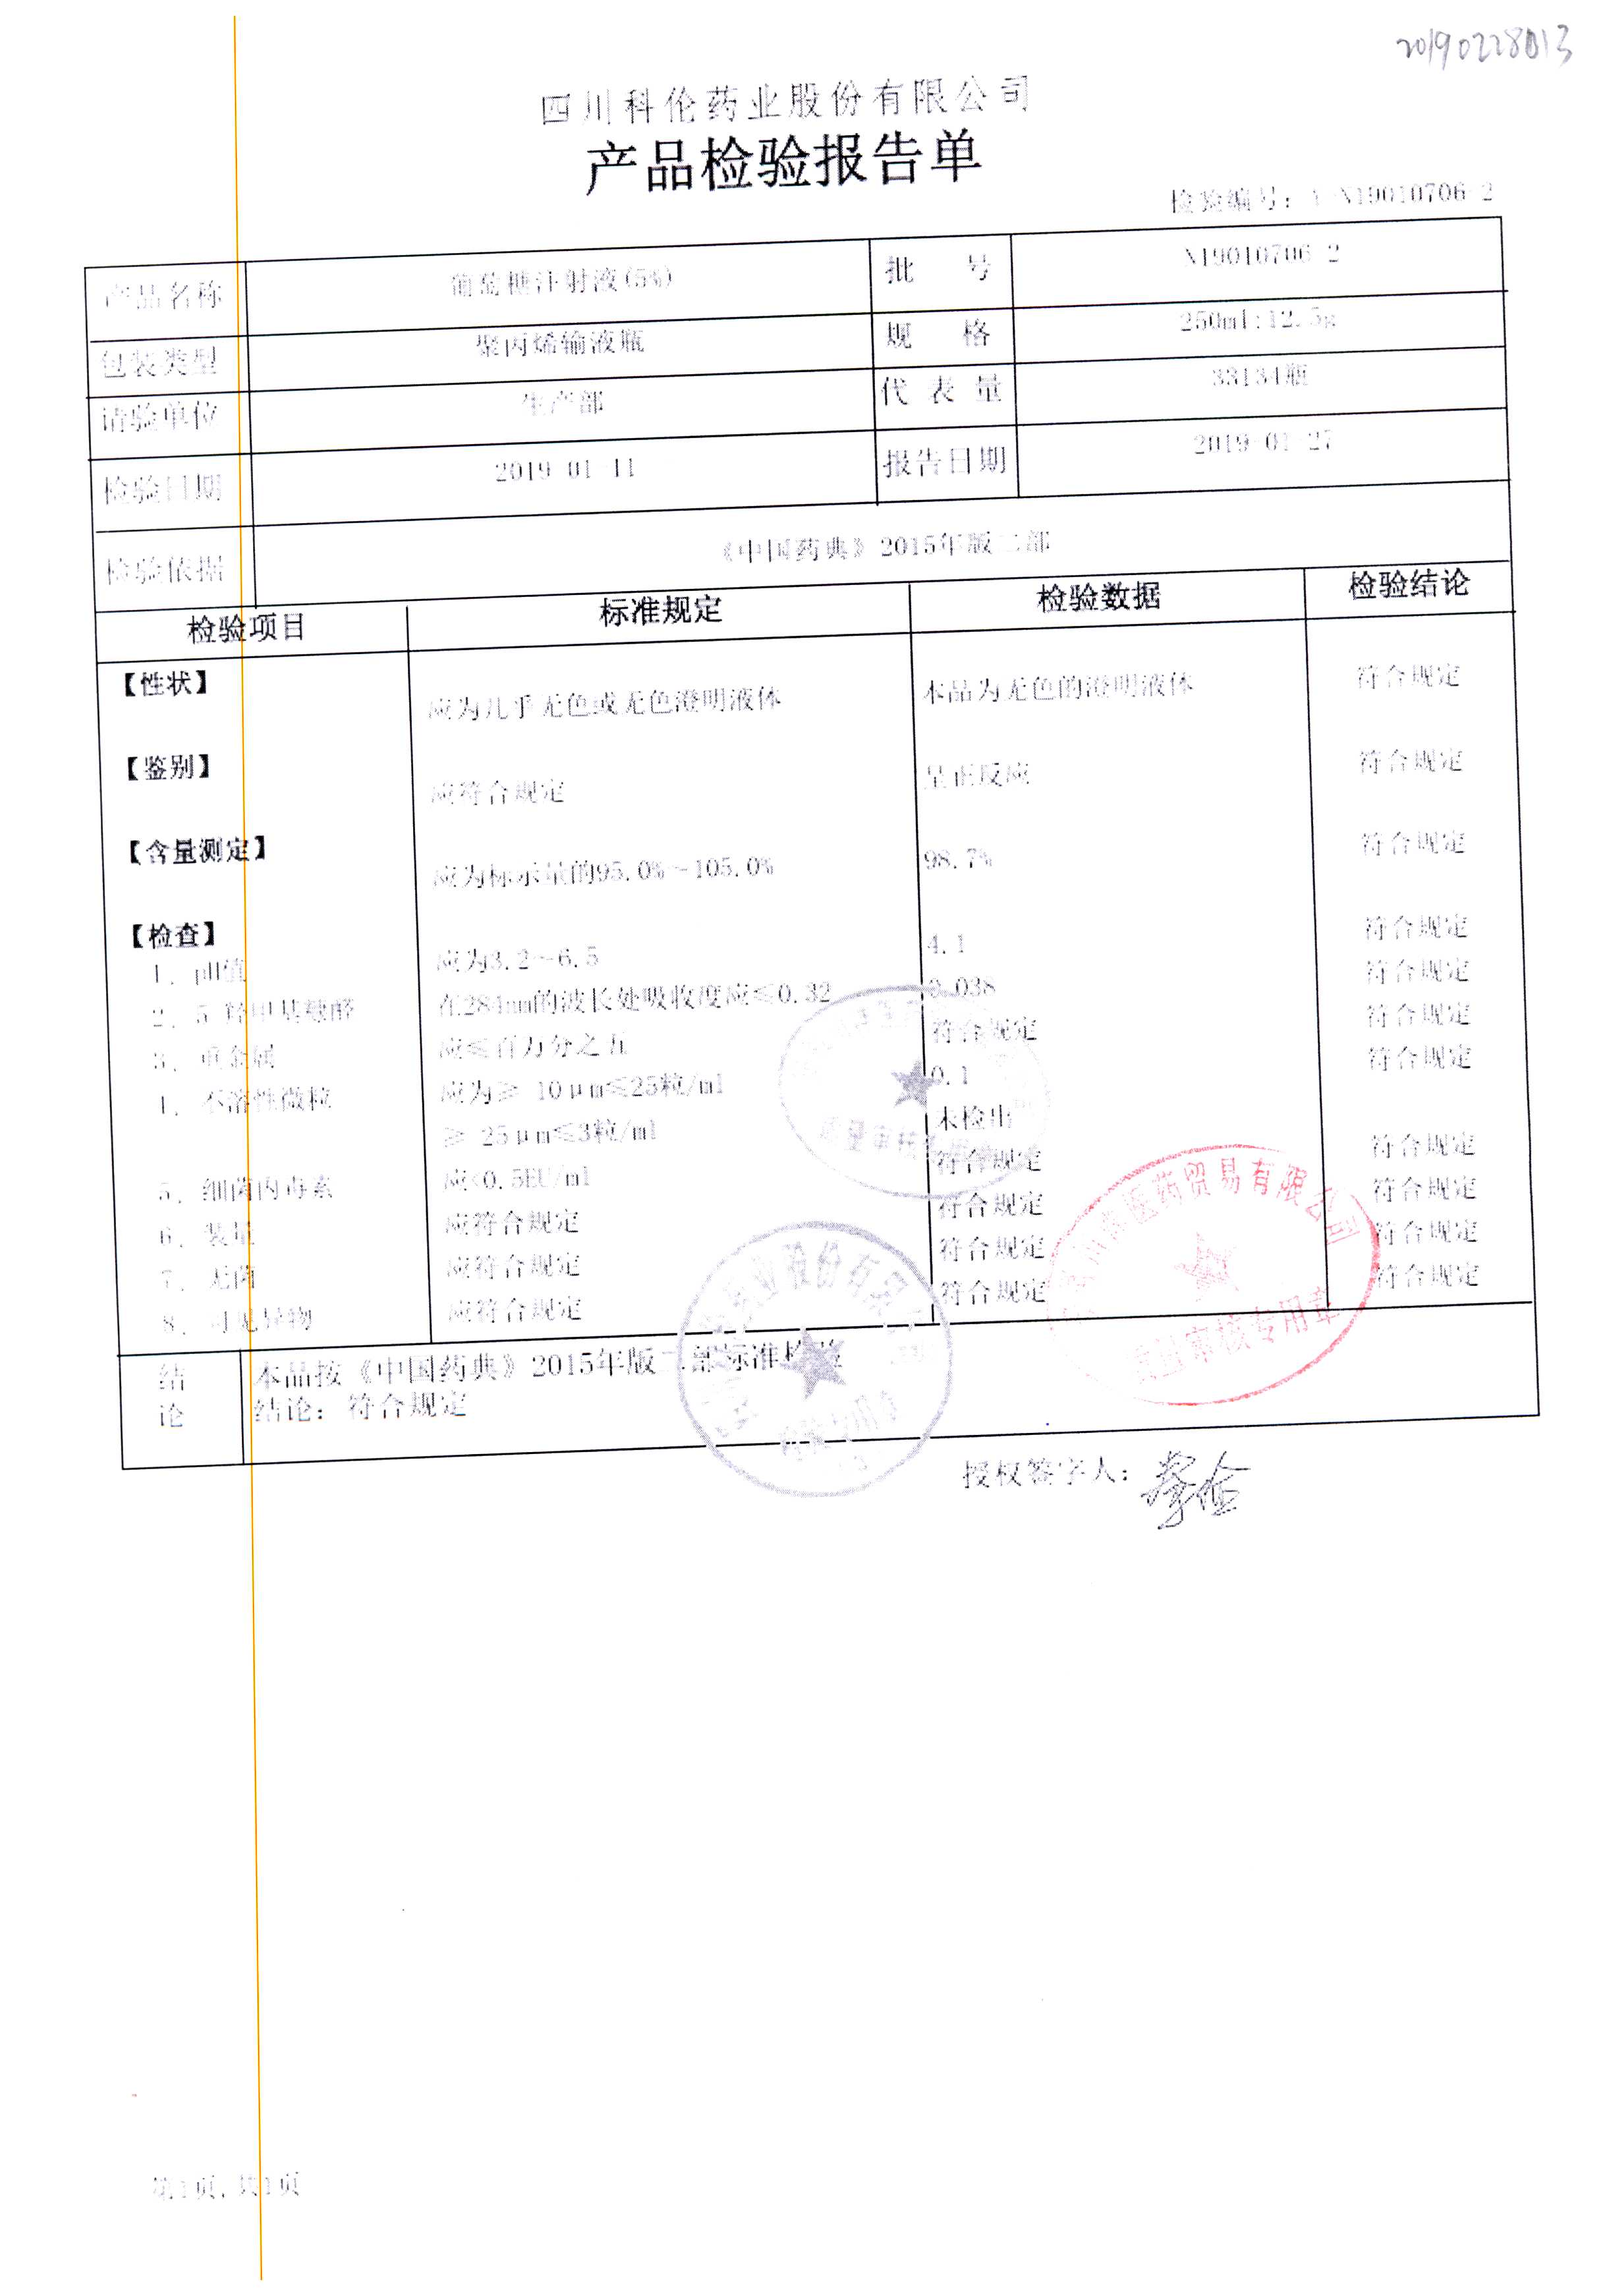 20190228013
四川科伦药业股份有限公司
产品检验报告单
检验编号: N19010706-2
产品名称 葡萄糖注射液(5%) 批 号 N19010706-2
包装类型 聚丙烯输液瓶 规 格 250ml:12.5g
请验单位 生产部 代 表 量 33134瓶
检验日期 2019-01-11 报告日期 2019-01-27
检验依据 《中国药典》2015年版二部
检验项目 标准规定 检验数据 检验结论
【性状】 应为几乎无色或无色澄明液体 本品为无色的澄明液体 符合规定
【鉴别】 应符合规定 呈正反应 符合规定
【含量测定】 应为标示量的95.0%~105.0% 98.7% 符合规定
【检查】
1. pH值 应为3.2~6.5 4.1 符合规定
2. 5-羟甲基糠醛 在284nm的波长处吸收度应≤0.32 0.038 符合规定
3. 重金属 应≤百万分之五 符合规定 符合规定
4. 不溶性微粒 应为≥ 10μm≤25粒/ml 0.1 符合规定
≥ 25μm≤3粒/ml 未检出
5. 细菌内毒素 应<0.5EU/ml 符合规定 符合规定
6. 装量 应符合规定 符合规定 符合规定
7. 无菌 应符合规定 符合规定 符合规定
8. 可见异物 应符合规定 符合规定 符合规定
医药贸易有限公司
质量审核专用章
结论 本品按《中国药典》2015年版二部标准检验
结论: 符合规定
业股份有限
授权签字人:
第1页, 共1页